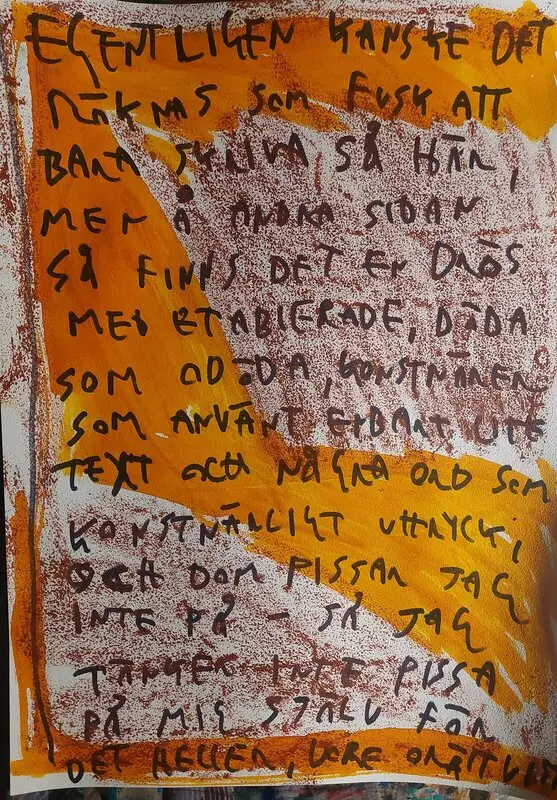 EGENTLIGEN KANSKE DET
RÄKNAS SOM FUSK ATT
BARA SKRIVA SÅ HÄR,
MEN Å ANDRA SIDAN
SÅ FINNS DET EN DRÖS
MED ETABIERADE, DÖDA
SOM ODÖDA, KONSTNÄRER
SOM ANVÄNT ENBART LITE
TEXT OCH NÅGRA ORD SOM
KONSTNÄRLIGT UTTRYCK,
OCH DOM PISSAR JAG
INTE PÅ - SÅ JAG
TÄNKER INTE PISSA
PÅ MIG SJÄLV FÖR
DET HELLER, VORE ORÄTTVIST